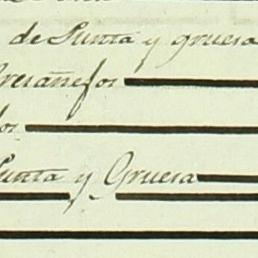 de Punta y gruesa
Cresañejos
jos
Punta y Gruesa